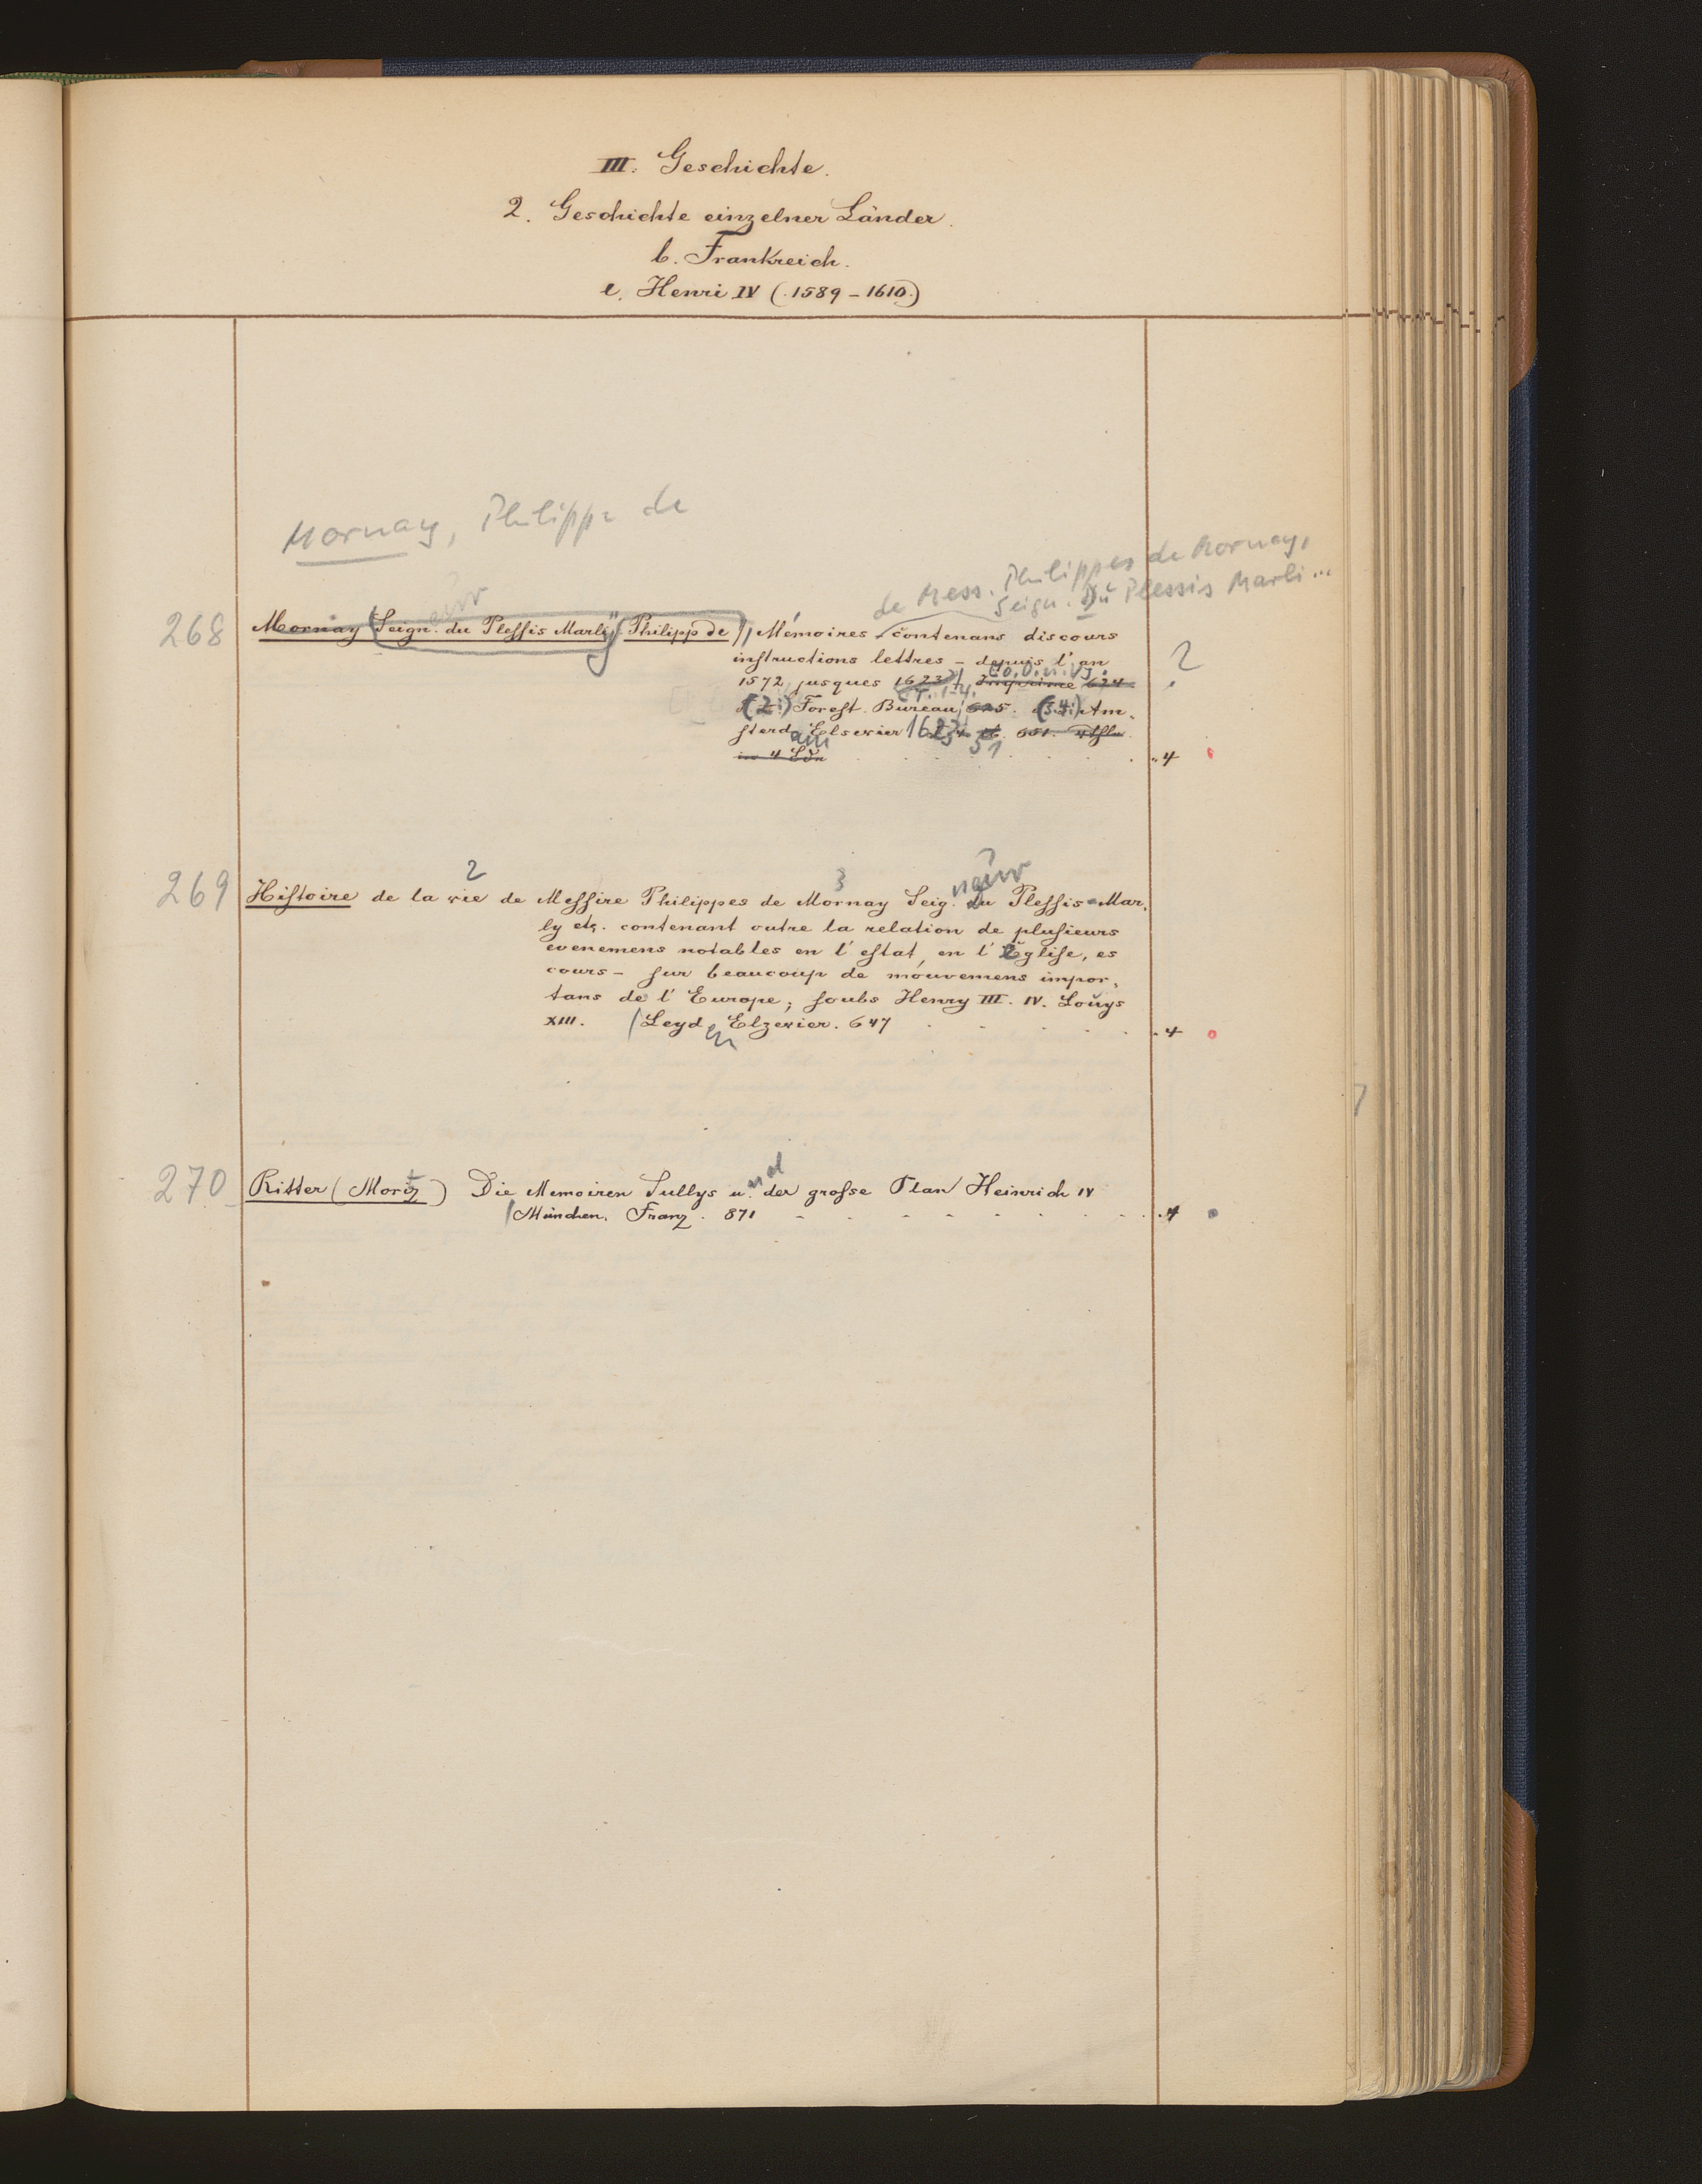 III. Geschichte.
2. Geschichte einzelner Länder.
b. Frankreich.
e. Henri IV (1589-1610.)
Mornay, Philippe de
de Mess. Philippes de Mornay,
Seign. Du Plessis Marli...
268 Mornay (Seign. du Plessis Marly) Philipp de), Mémoires contenans discours
instructions lettres – depuis l'an ?
1572 jusques 1623) Imprime 624
(T. 1-4.
(2:) Forest. Bureau 625. (3.4:) Am-
sterdam Elsevier
in 4 Bdn . . . . . . . 4
269 Histoire de la vie de Messire Philippes de Mornay Seigneur Du Plessis-Mar-
2 3
ly etc. contenant outre la relation de plusieurs
evenemens notables en l'estat, en l'Eglise, es
cours – sur beaucoup de mouvemens impor-
tans de l'Europe; soubs Henry III. IV. Louys
XIII. (Leyden Elzevier. 647 . . . . . . 4
270 Ritter (Moritz) Die Memoiren Sullys und der grosse Plan Heinrich IV
(München. Franz. 871 - . . - - . . . . . 4